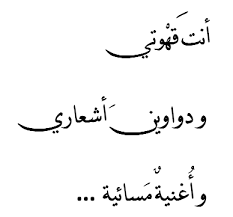 أنت قَهْوتي
و دواوين َ أشعاري
و أُغنيةٌ مَسائية ...